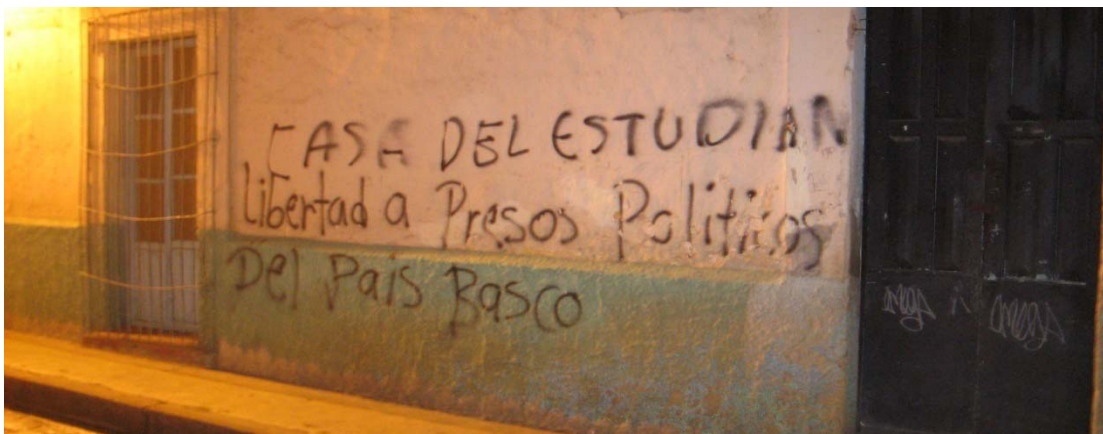 CASA DEL ESTUDIAN
libertad a Presos Politicos
Del Pais Basco
omega